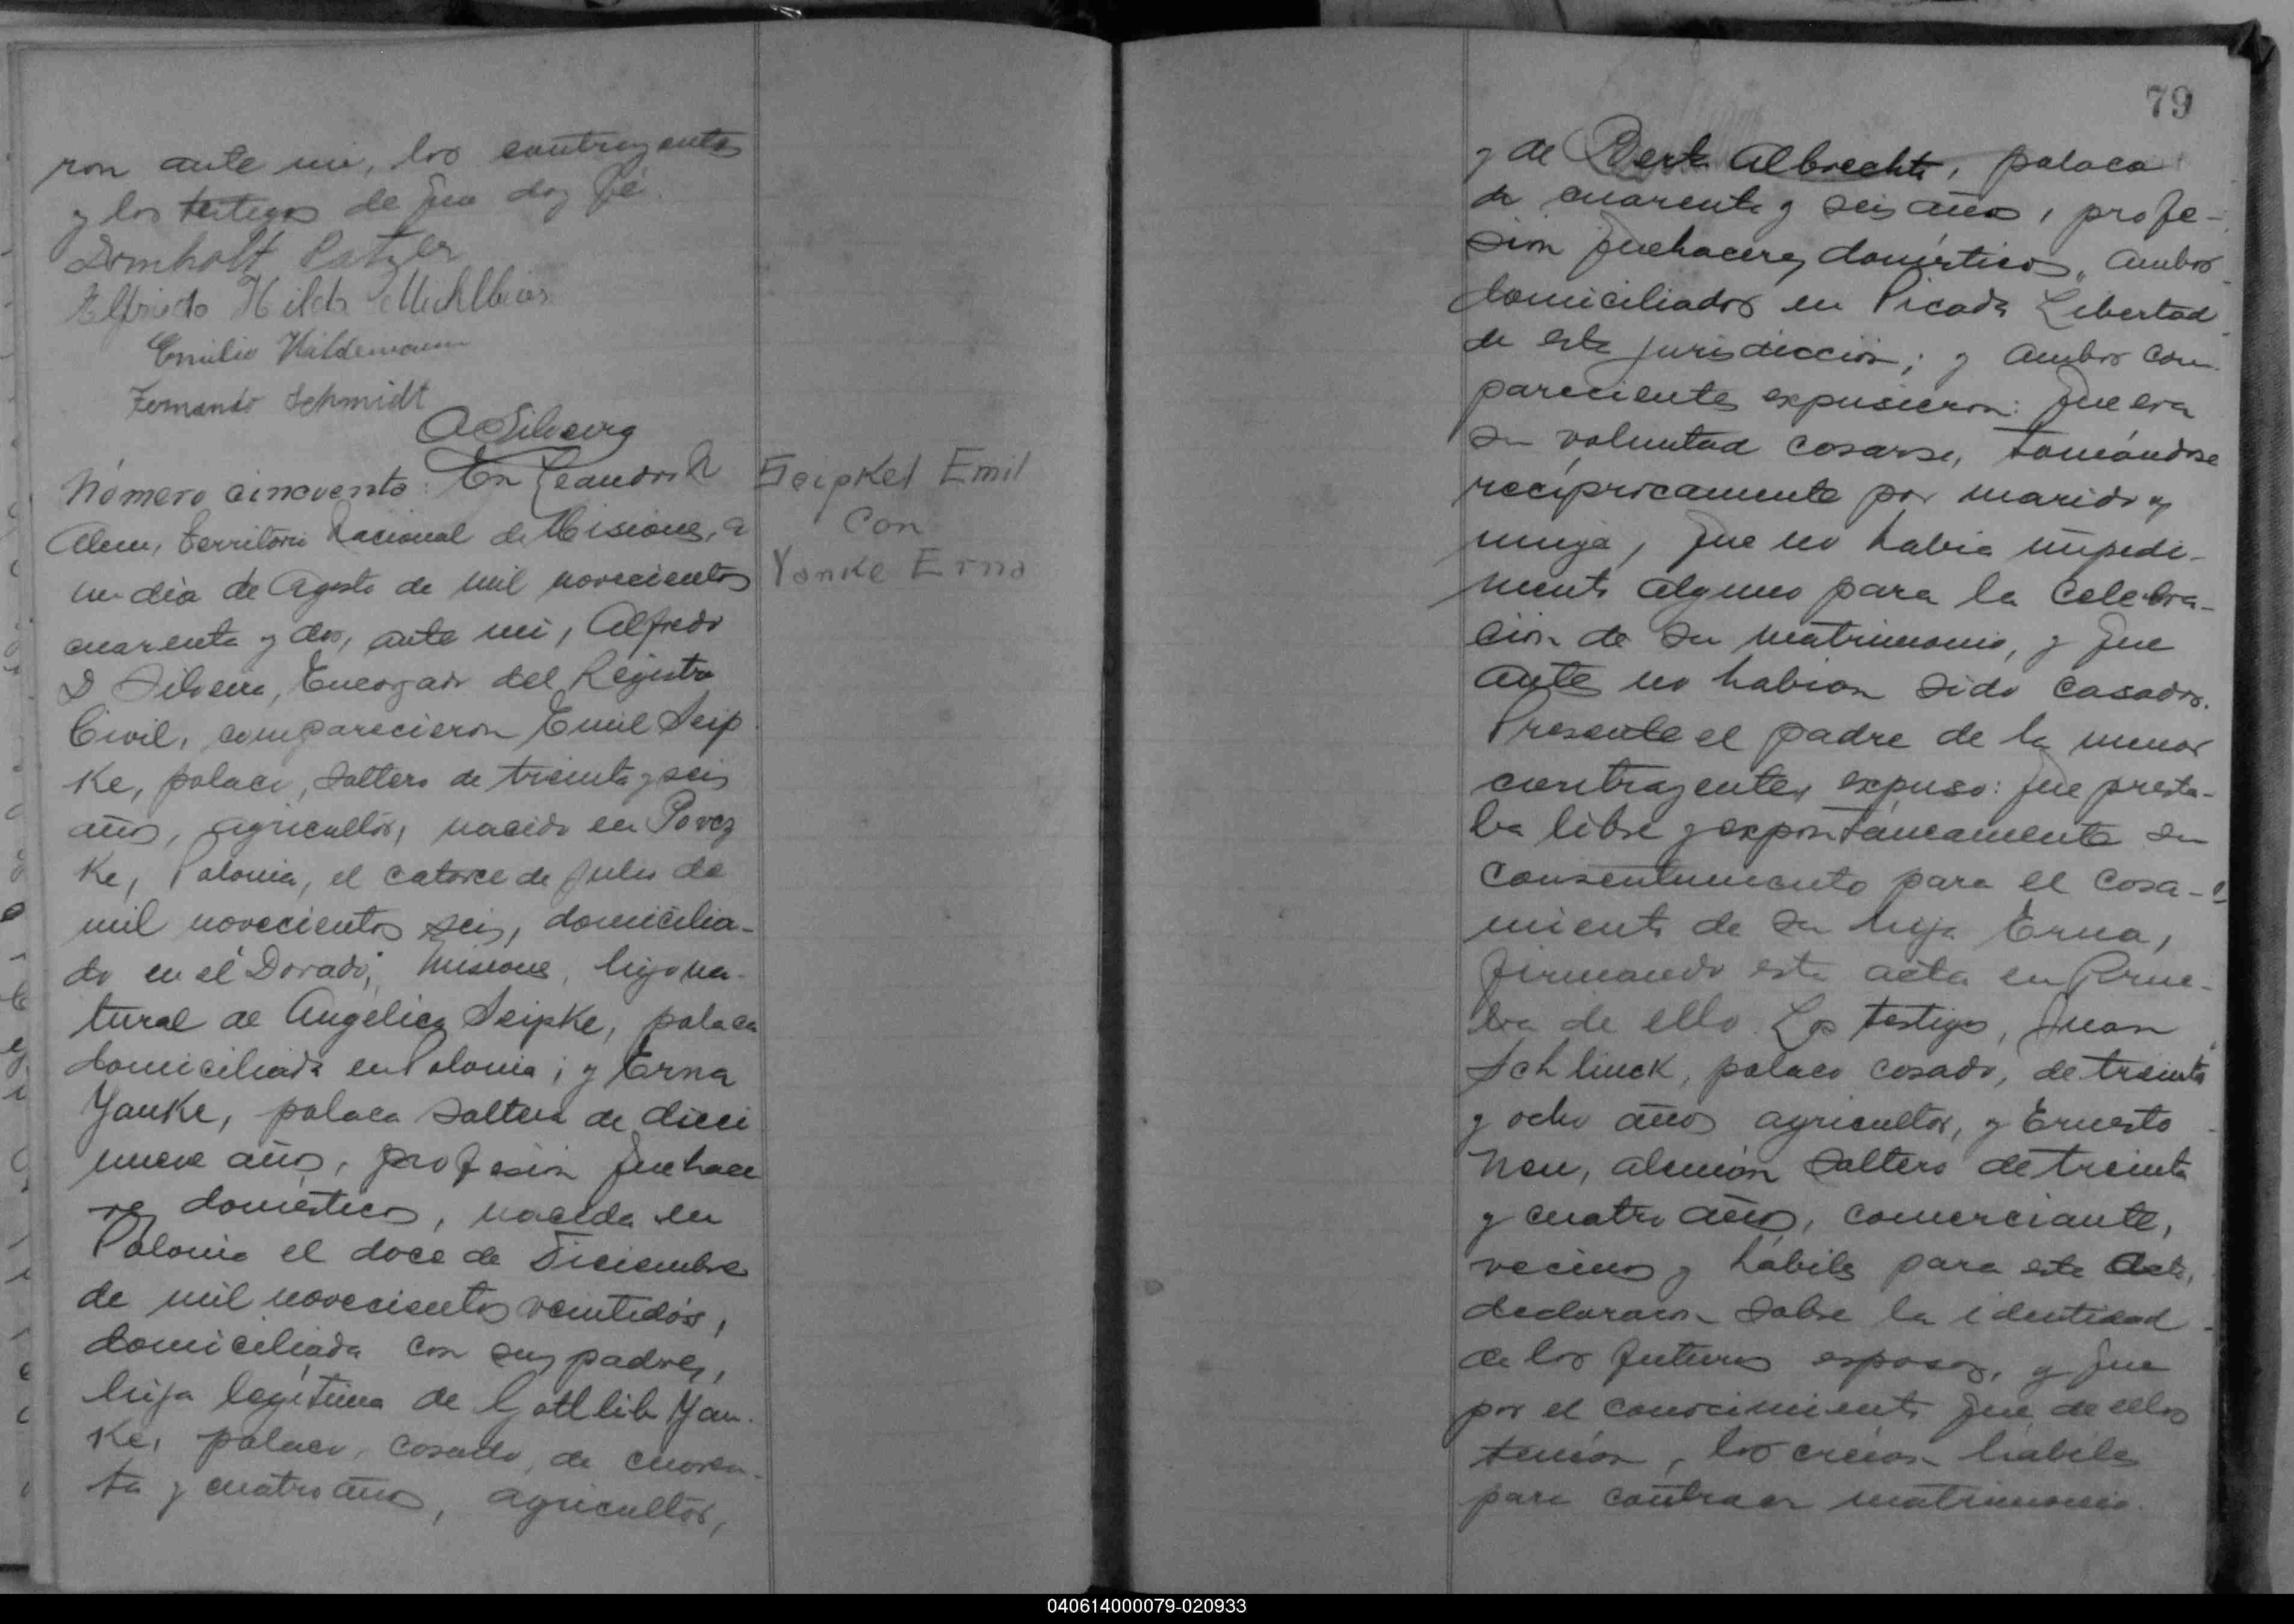 ron ante mi, los contrayentes
y los testigos de que doy fé.
Elfrieda Hilda
Emilio Waldemann
Fernando Schmidt
Número cincuenta: En Leandro N
Alem, Territorio Nacional de Misiones, a
un dia de Agosto de mil novecientos
cuarenta y dos, ante mi, Alfredo
D Silveira, Encargado del Registro
Civil, comparecieron Emil Seip
ke, polaco, soltero de treinta y seis
años, agricultor, nacido en
Ke, Polonia, el catorce de Julio de
mil novecientos seis, domicilia-
do en el Dorado, Misiones, hijo na-
tural de Angélica Seipke, polaca
domiciliada en Polonia; y Erna
Yanke, polaca soltera de dieci
nueve años, profesión quehace
res domésticos, nacida en
Polonia el doce de Diciembre
de mil novecientos veintidós,
domiciliada con sus padres,
hija legítima de Gottlib Yan-
Ke, polaco, casado, de cuaren-
ta y cuatro años, agricultor,
Seipkel Emil
con
Yanke Erna
79
y de Berta Albrecht, polaca
de cuarenta y seis años, profe-
sión quehaceres domésticos, ambos
domiciliados en Picada Libertad
de esta jurisdicción; y ambos com-
parecientes expusieron: Que era
su voluntad casarse, tomándose
recíprocamente por marido y
mujer, que no habia impedi-
mento alguno para la celebra-
ción de su matrimonio, y que
antes no habian sido casados.
Presente el padre de la menor
contrayente, expuso: que presta-
ba libre y expontáneamente su
consentimiento para el casa-
miento de su hija Erna,
firmando esta acta en Prue-
ba de ello. Los testigos, Juan
Schlinck, polaco casado, de treinta
y ocho años agricultor, y Ernesto
Neu, alemán soltero de treinta
y cuatro años, comerciante,
vecinos y hábiles para este acto,
declararon sobre la identidad
de los futuros esposos, y que
por el conocimiento que de ellos
tenían, los creían hábiles
para contraer matrimonio.
040614000079-020933